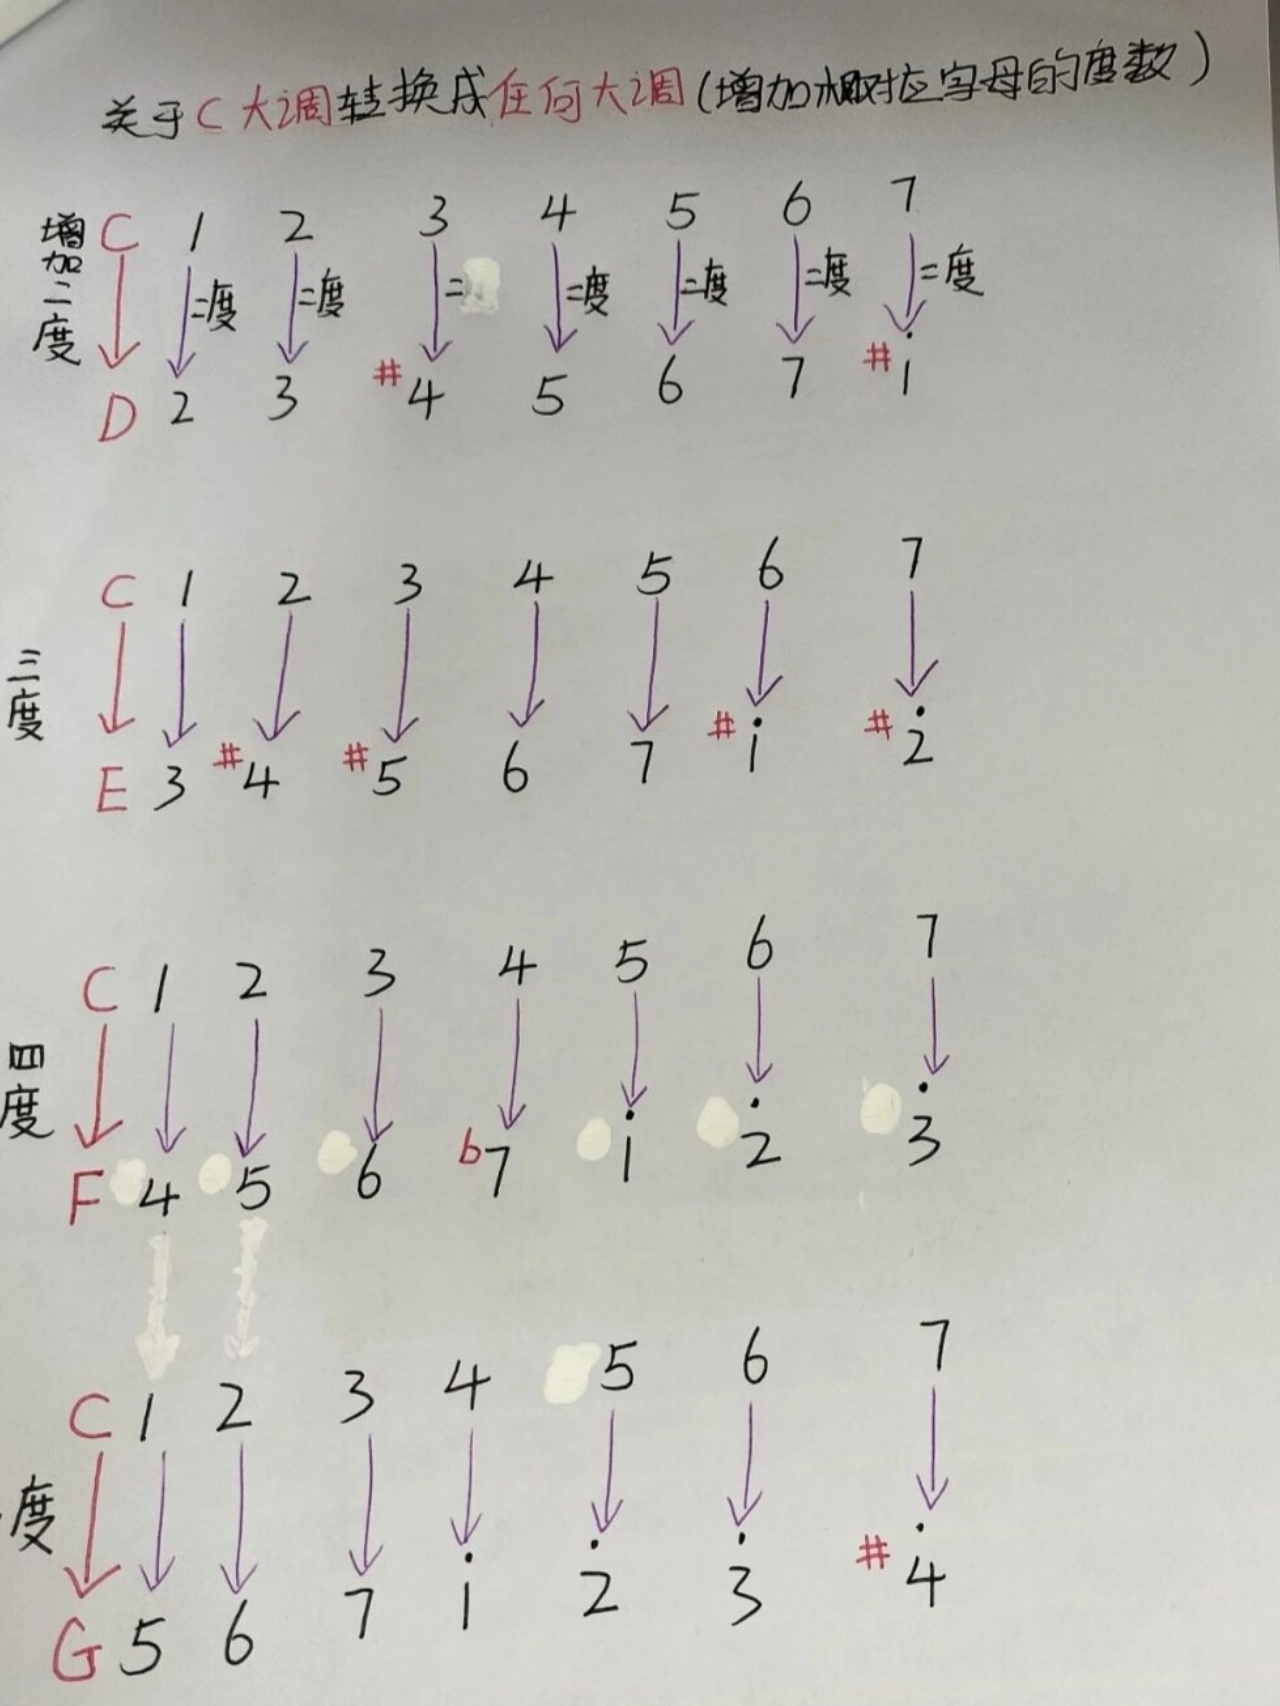 关于C大调转换成任何大调(增加相对应字母的度数)
增加二度
C 1 2 3 4 5 6 7
=度 =度 = =度 =度 =度 =度
D 2 3 #4 5 6 7 #i
三度
C 1 2 3 4 5 6 7
E 3 #4 #5 6 7 #i #2̇
四度
C 1 2 3 4 5 6 7
F 4 5 6 b7 i 2̇ 3̇
度
C 1 2 3 4 5 6 7
G 5 6 7 i 2̇ 3̇ #4̇